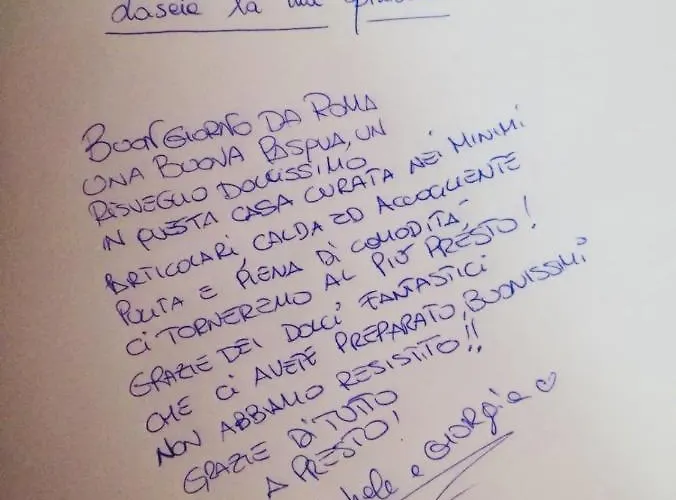 la mia
BUONGIORNO DA ROMA
UNA BUONA PASQUA, UN
RISVEGLIO DOLCISSIMO
IN QUESTA CASA CURATA NEI MINIMI
ARTICOLARI, CALDA ED ACCOGLIENTE
PULITA E PIENA DI COMODITÀ,
CI TORNEREMO AL PIÙ PRESTO!
GRAZIE DEI DOLCI FANTASTICI
CHE CI AVETE PREPARATO, BUONISSIMI
NON ABBIAMO RESISTITO!!
GRAZIE DI TUTTO
A PRESTO!
e GIORGIA